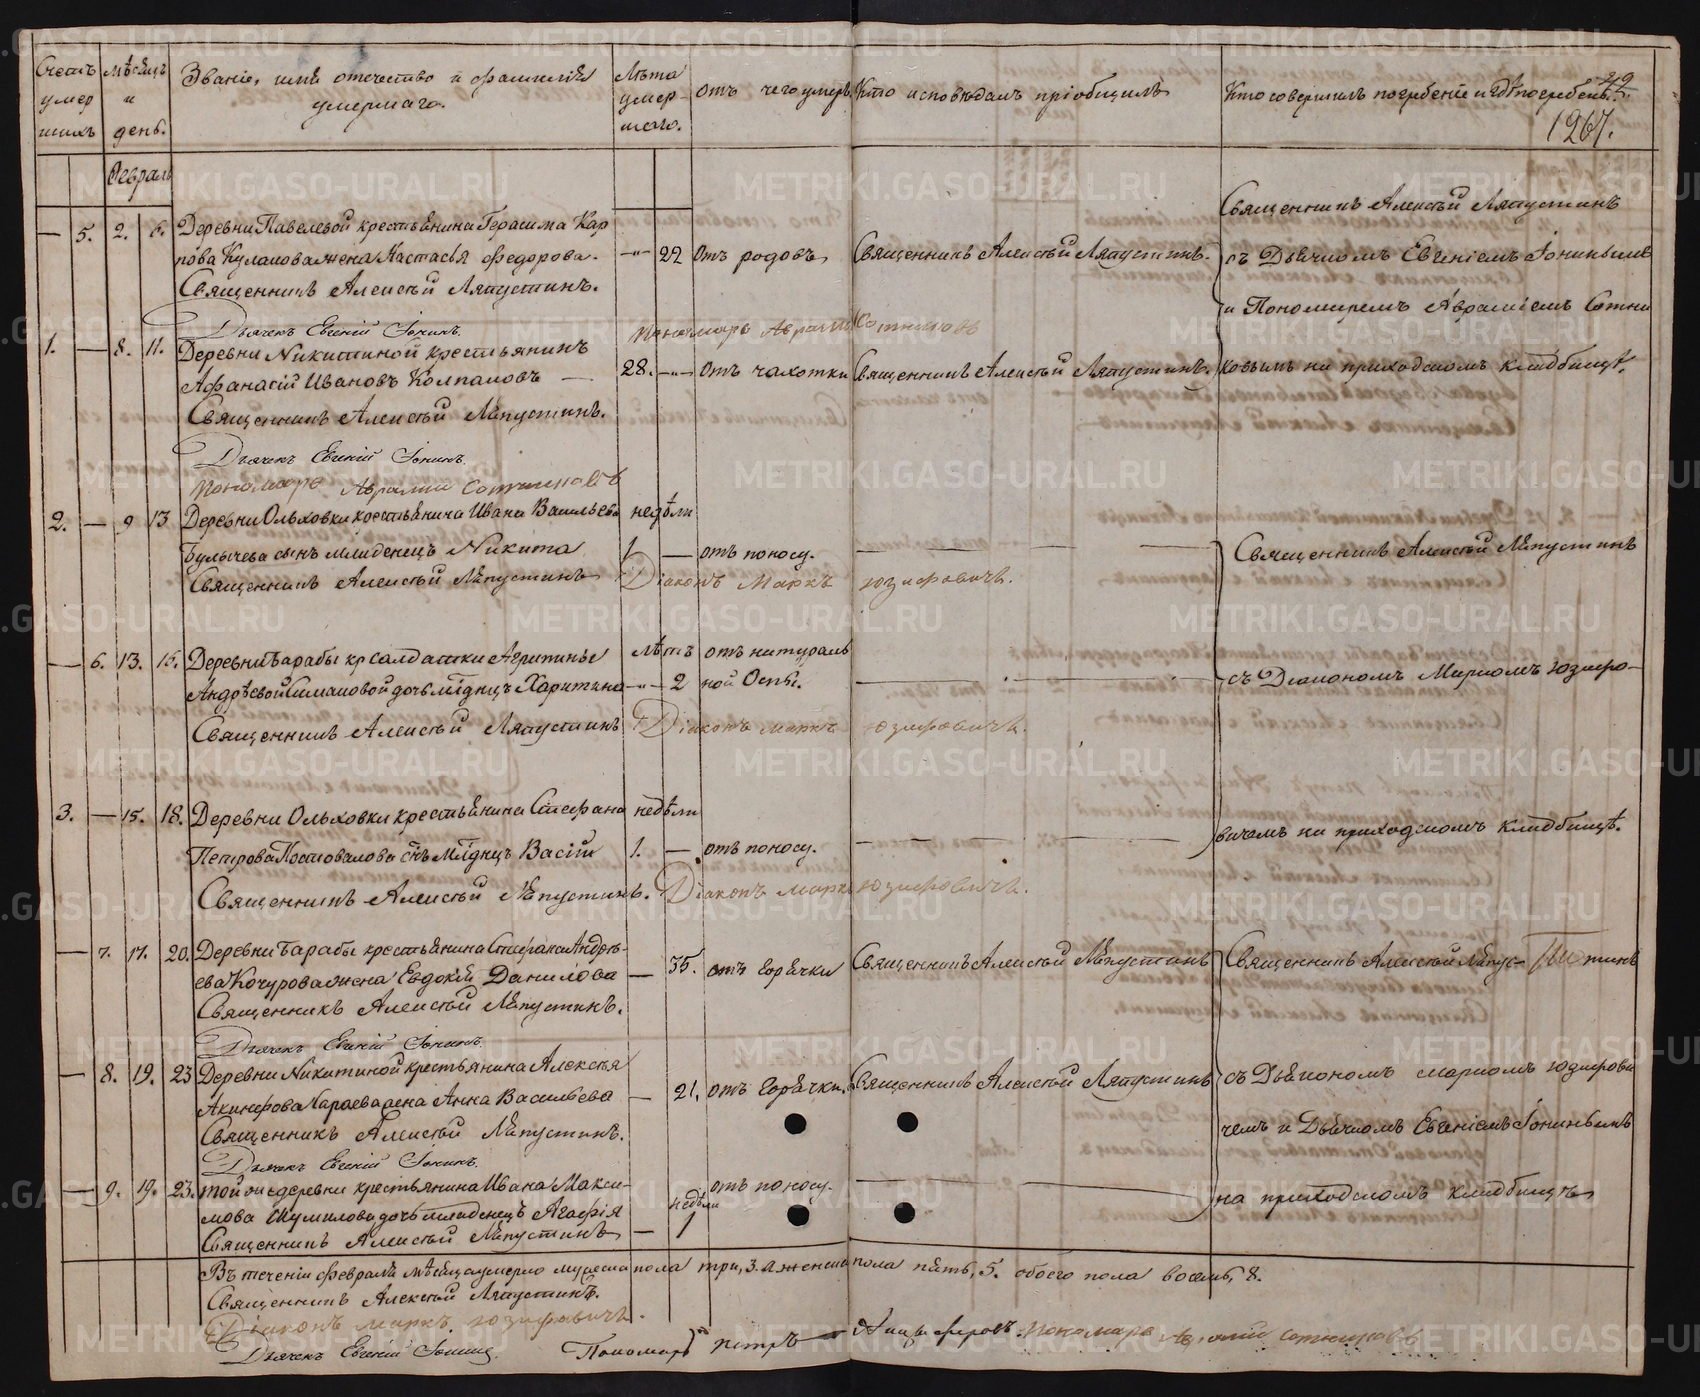 Счетъ умершихъ
Мѣсяцъ и день.
Званіе, имя отечество и фамилія умершаго.
Лѣта умершаго.
Отъ чего умеръ
Кто исповѣдалъ пріобщилъ
Кто совершилъ погребеніе и гдѣ погребенъ.
Февраль
— 5. 2. 6. Деревни Павелевой крестьянина Герасима Кар
пова жена Настасья Федорова. —„— 22 Отъ родовъ, Священникъ Алексѣй Ляпустинъ.
Священникъ Алексѣй Ляпустинъ.
Дьячекъ Евгеній Іонинъ. Пономарь Аврамій Сотниковъ
Священникъ Алексѣй Ляпустинъ
съ Дьячкомъ Евгеніемъ Іонинымъ
и Пономаремъ Аврамiемъ Сотни
ковымъ на приходскомъ кладбищѣ.
1. — 8. 11. Деревни Никитиной крестьянинъ
Афанасій Ивановъ Колпаковъ — 28. —„— отъ чахотки Священникъ Алексѣй Ляпустинъ.
Священникъ Алексѣй Ляпустинъ.
Дьячекъ Евгеній Іонинъ.
Пономарь Аврамій Сотниковъ
2. — 9 13 Деревни Ольховки крестьянина Ивана Васильева недѣли
Булычева сынъ младенецъ Никита 1 — отъ поносу. — — —
Священникъ Алексѣй Ляпустинъ Діаконъ Маркъ Юзифовичъ.
Священникъ Алексѣй Ляпустинъ
— 6. 13. 15. Деревни Барабы кр солдатки Агрипины лѣтъ отъ натураль
Андрѣевой дочь млднцъ Харитина —„— 2 ной Оспы. — — —
Священникъ Алексѣй Ляпустинъ Діаконъ Маркъ Юзифовичъ.
съ Діакономъ Маркомъ Юзифо-
3. — 15. 18. Деревни Ольховки крестьянина Стефана недѣли
Петрова Постовалова снъ млднцъ Васілій 1. — отъ поносу. — — —
Священникъ Алексѣй Ляпустинъ. Діаконъ Маркъ Юзифовичъ.
вичемъ на приходскомъ кладбищѣ.
— 7. 17. 20. Деревни Барабы крестьянина Стефана Андрѣ-
ева Кочурова жена Евдокія Данилова — 35. отъ горячки Священникъ Алексѣй Ляпустинъ
Священникъ Алексѣй Ляпустинъ.
Дьячекъ Евгеній Іонинъ.
Священникъ Алексѣй Ляпус- тинъ
— 8. 19. 23 Деревни Никитиной крестьянина Алексѣя
Акинфова жена Анна Васильева — 21. отъ горячки. Священникъ Алексѣй Ляпустинъ
Священникъ Алексѣй Ляпустинъ.
Дьячекъ Евгеній Іонинъ.
съ Дьякономъ Маркомъ Юзифови
чемъ и Дьячкомъ Евгеніемъ Іонинымъ
на приходскомъ кладбищѣ
— 9. 19. 23. той же деревни крестьянина Ивана Макси-
мова Шумилова дочь младенецъ Агафія — недѣли 1 отъ поносу. — —
Священникъ Алексѣй Ляпустинъ
Въ теченіи февраля мѣсяца умерло мужеска пола три, 3. а женска пола пять, 5. обоего пола восемь, 8.
Священникъ Алексѣй Ляпустинъ.
Діаконъ Маркъ Юзифовичъ.
Дьячекъ Евгеній Іонинъ. Пономарь Петръ Анциферовъ. Пономарь Аврамій Сотниковъ
METRIKI.GASO-URAL.RU